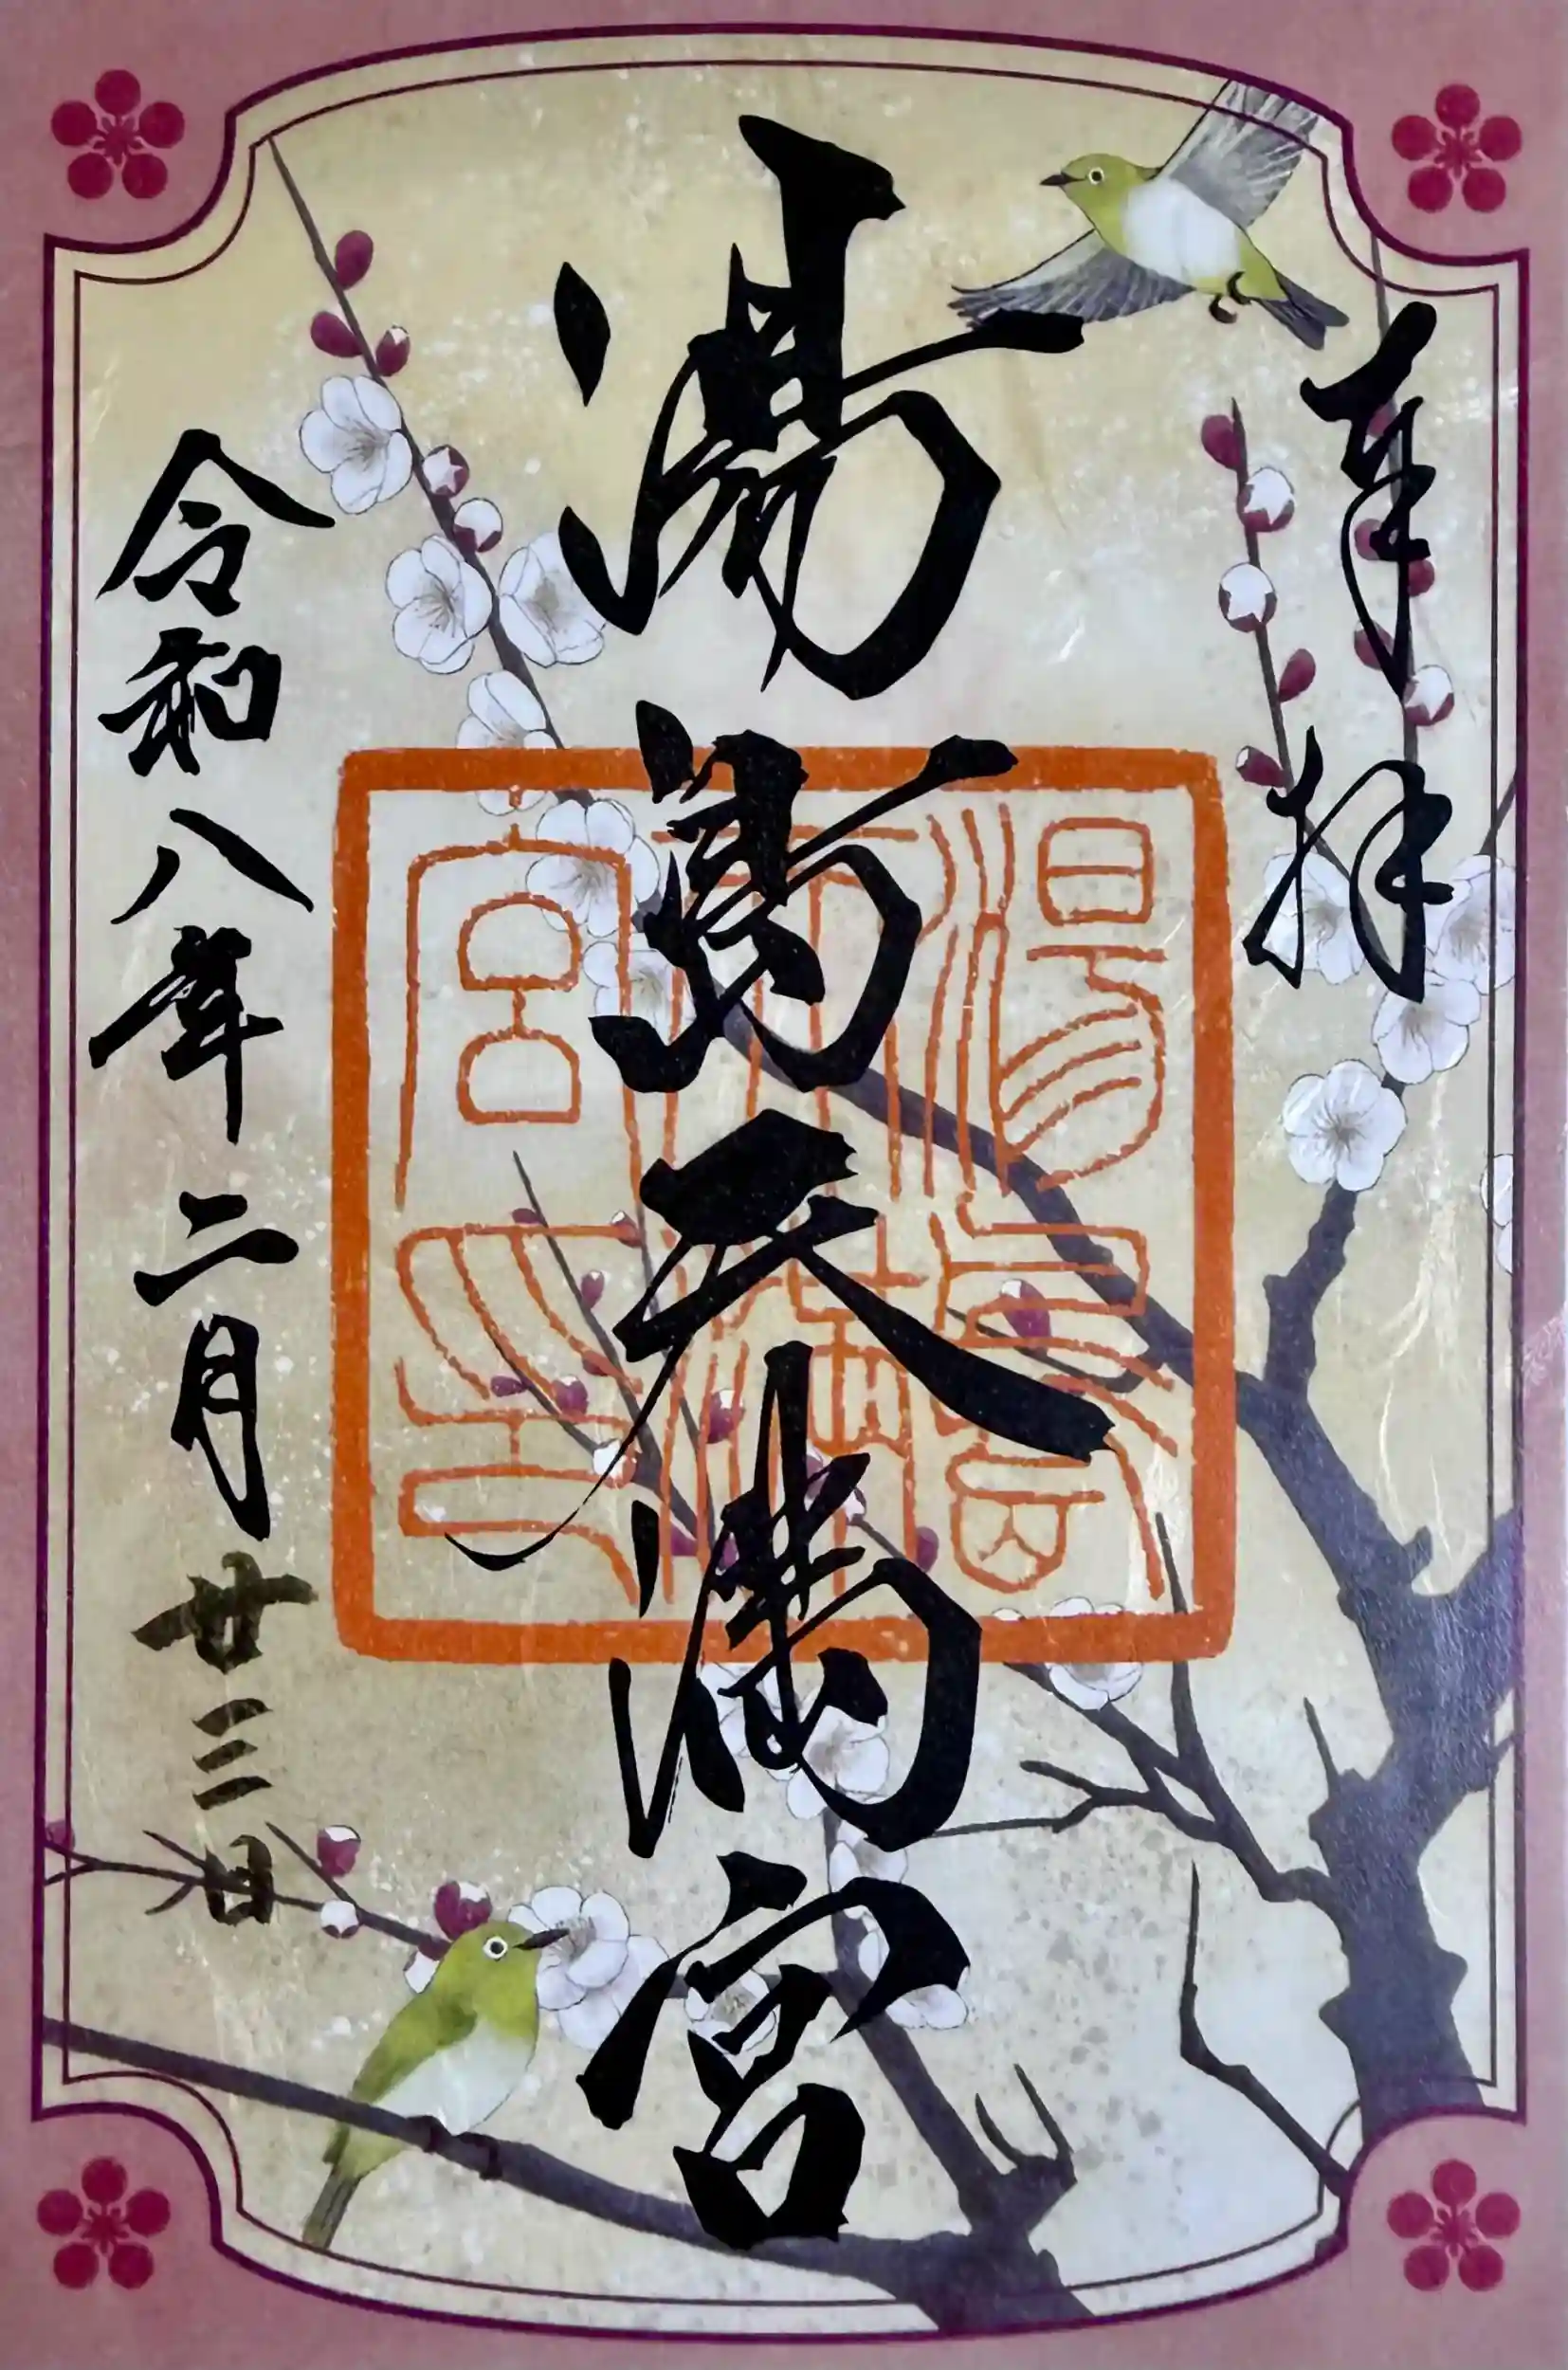 奉拝
湯島天満宮
湯島天満宮印
令和八年二月廿三日